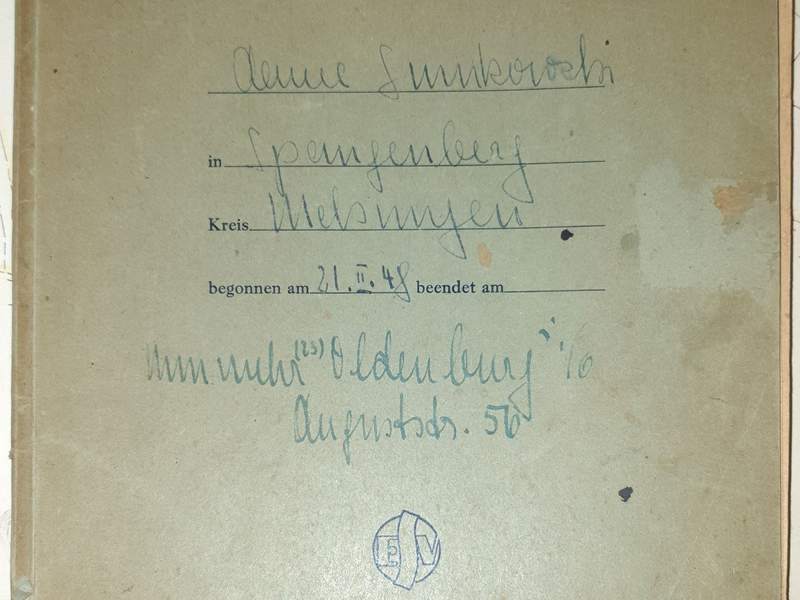 in Spangenberg
Kreis Melsungen
begonnen am 21.II.48 beendet am
nunmehr (23) Oldenburg i/O
Auguststr. 56
ESV